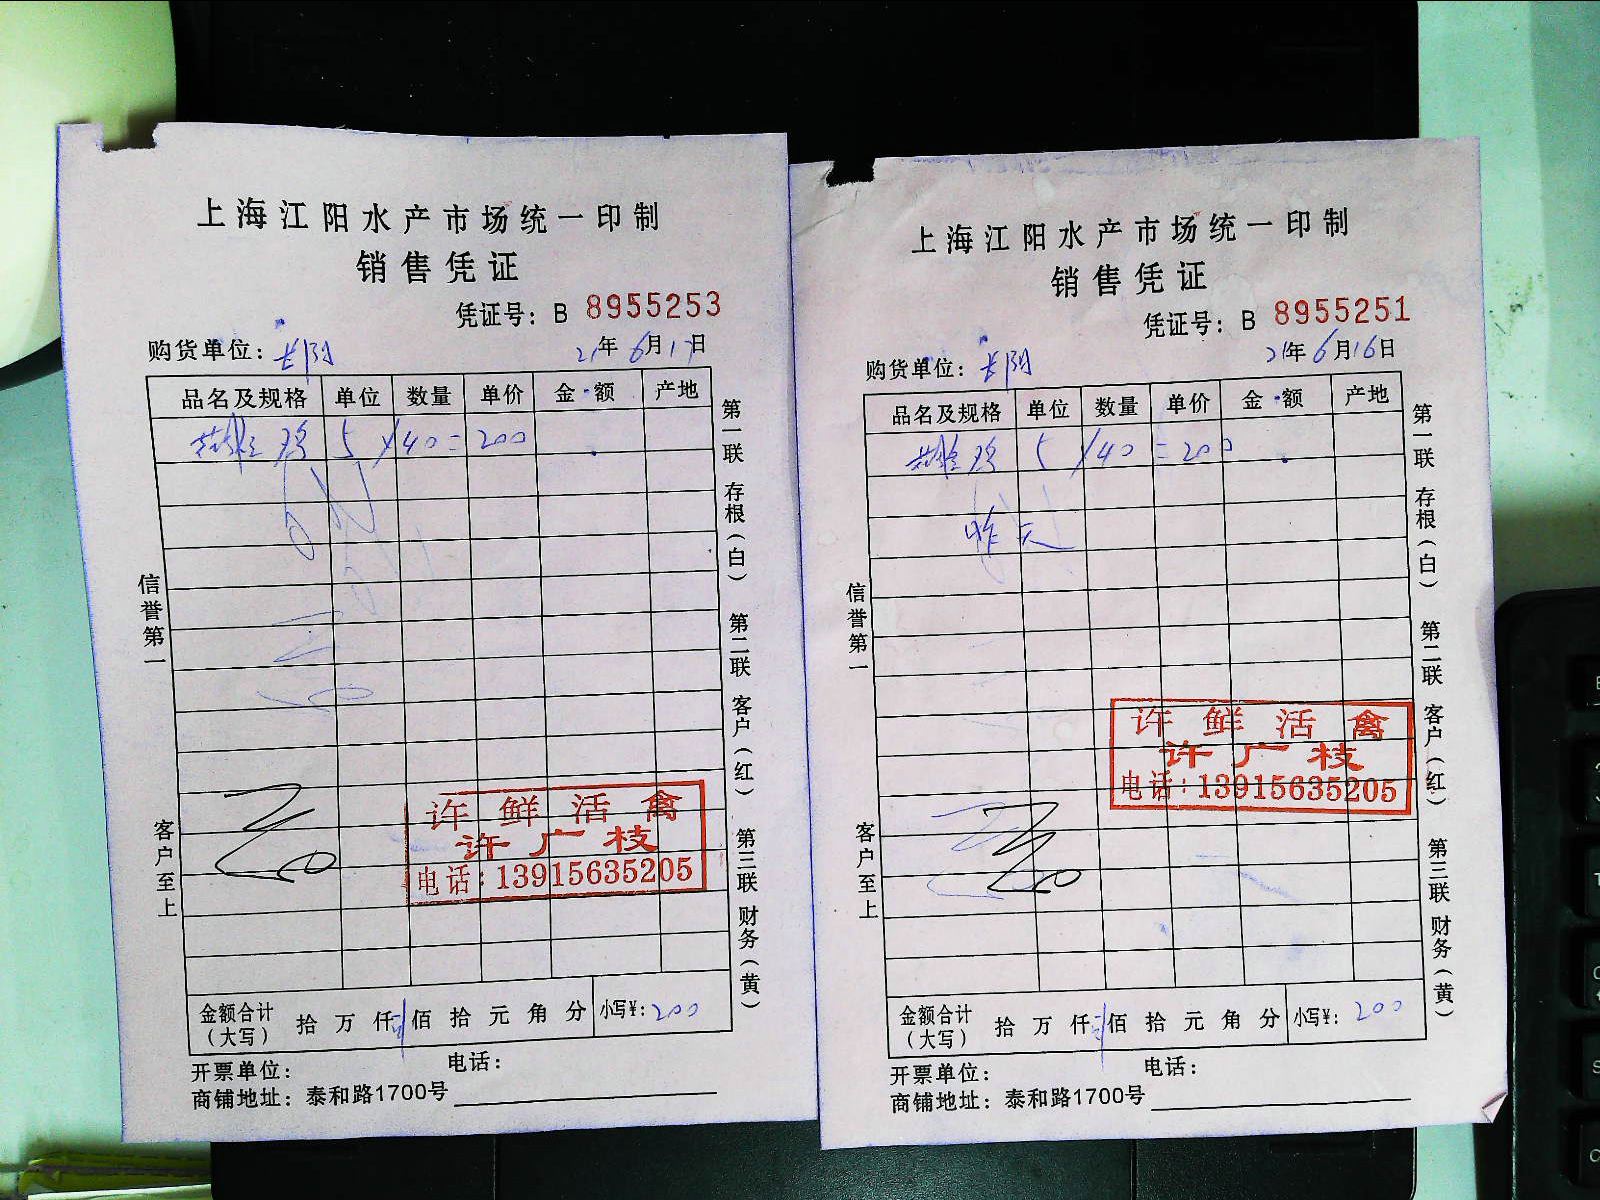 上海江阳水产市场统一印制
销售凭证
凭证号：B 8955253
购货单位：长阳 21年6月17日
品名及规格 单位 数量 单价 金额 产地
鸡 5 × 40 = 200
信誉第一
客户至上
第一联 存根（白） 第二联 客户（红） 第三联 财务（黄）
许鲜活禽
许广枝
电话：13915635205
金额合计（大写） 拾 万 仟 佰 拾 元 角 分 小写¥：200
开票单位： 电话：
商铺地址：泰和路1700号
上海江阳水产市场统一印制
销售凭证
凭证号：B 8955251
购货单位：长阳 21年6月16日
品名及规格 单位 数量 单价 金额 产地
鸡 5 × 40 = 200
昨天
信誉第一
客户至上
第一联 存根（白） 第二联 客户（红） 第三联 财务（黄）
许鲜活禽
许广枝
电话：13915635205
金额合计（大写） 拾 万 仟 佰 拾 元 角 分 小写¥：200
开票单位： 电话：
商铺地址：泰和路1700号